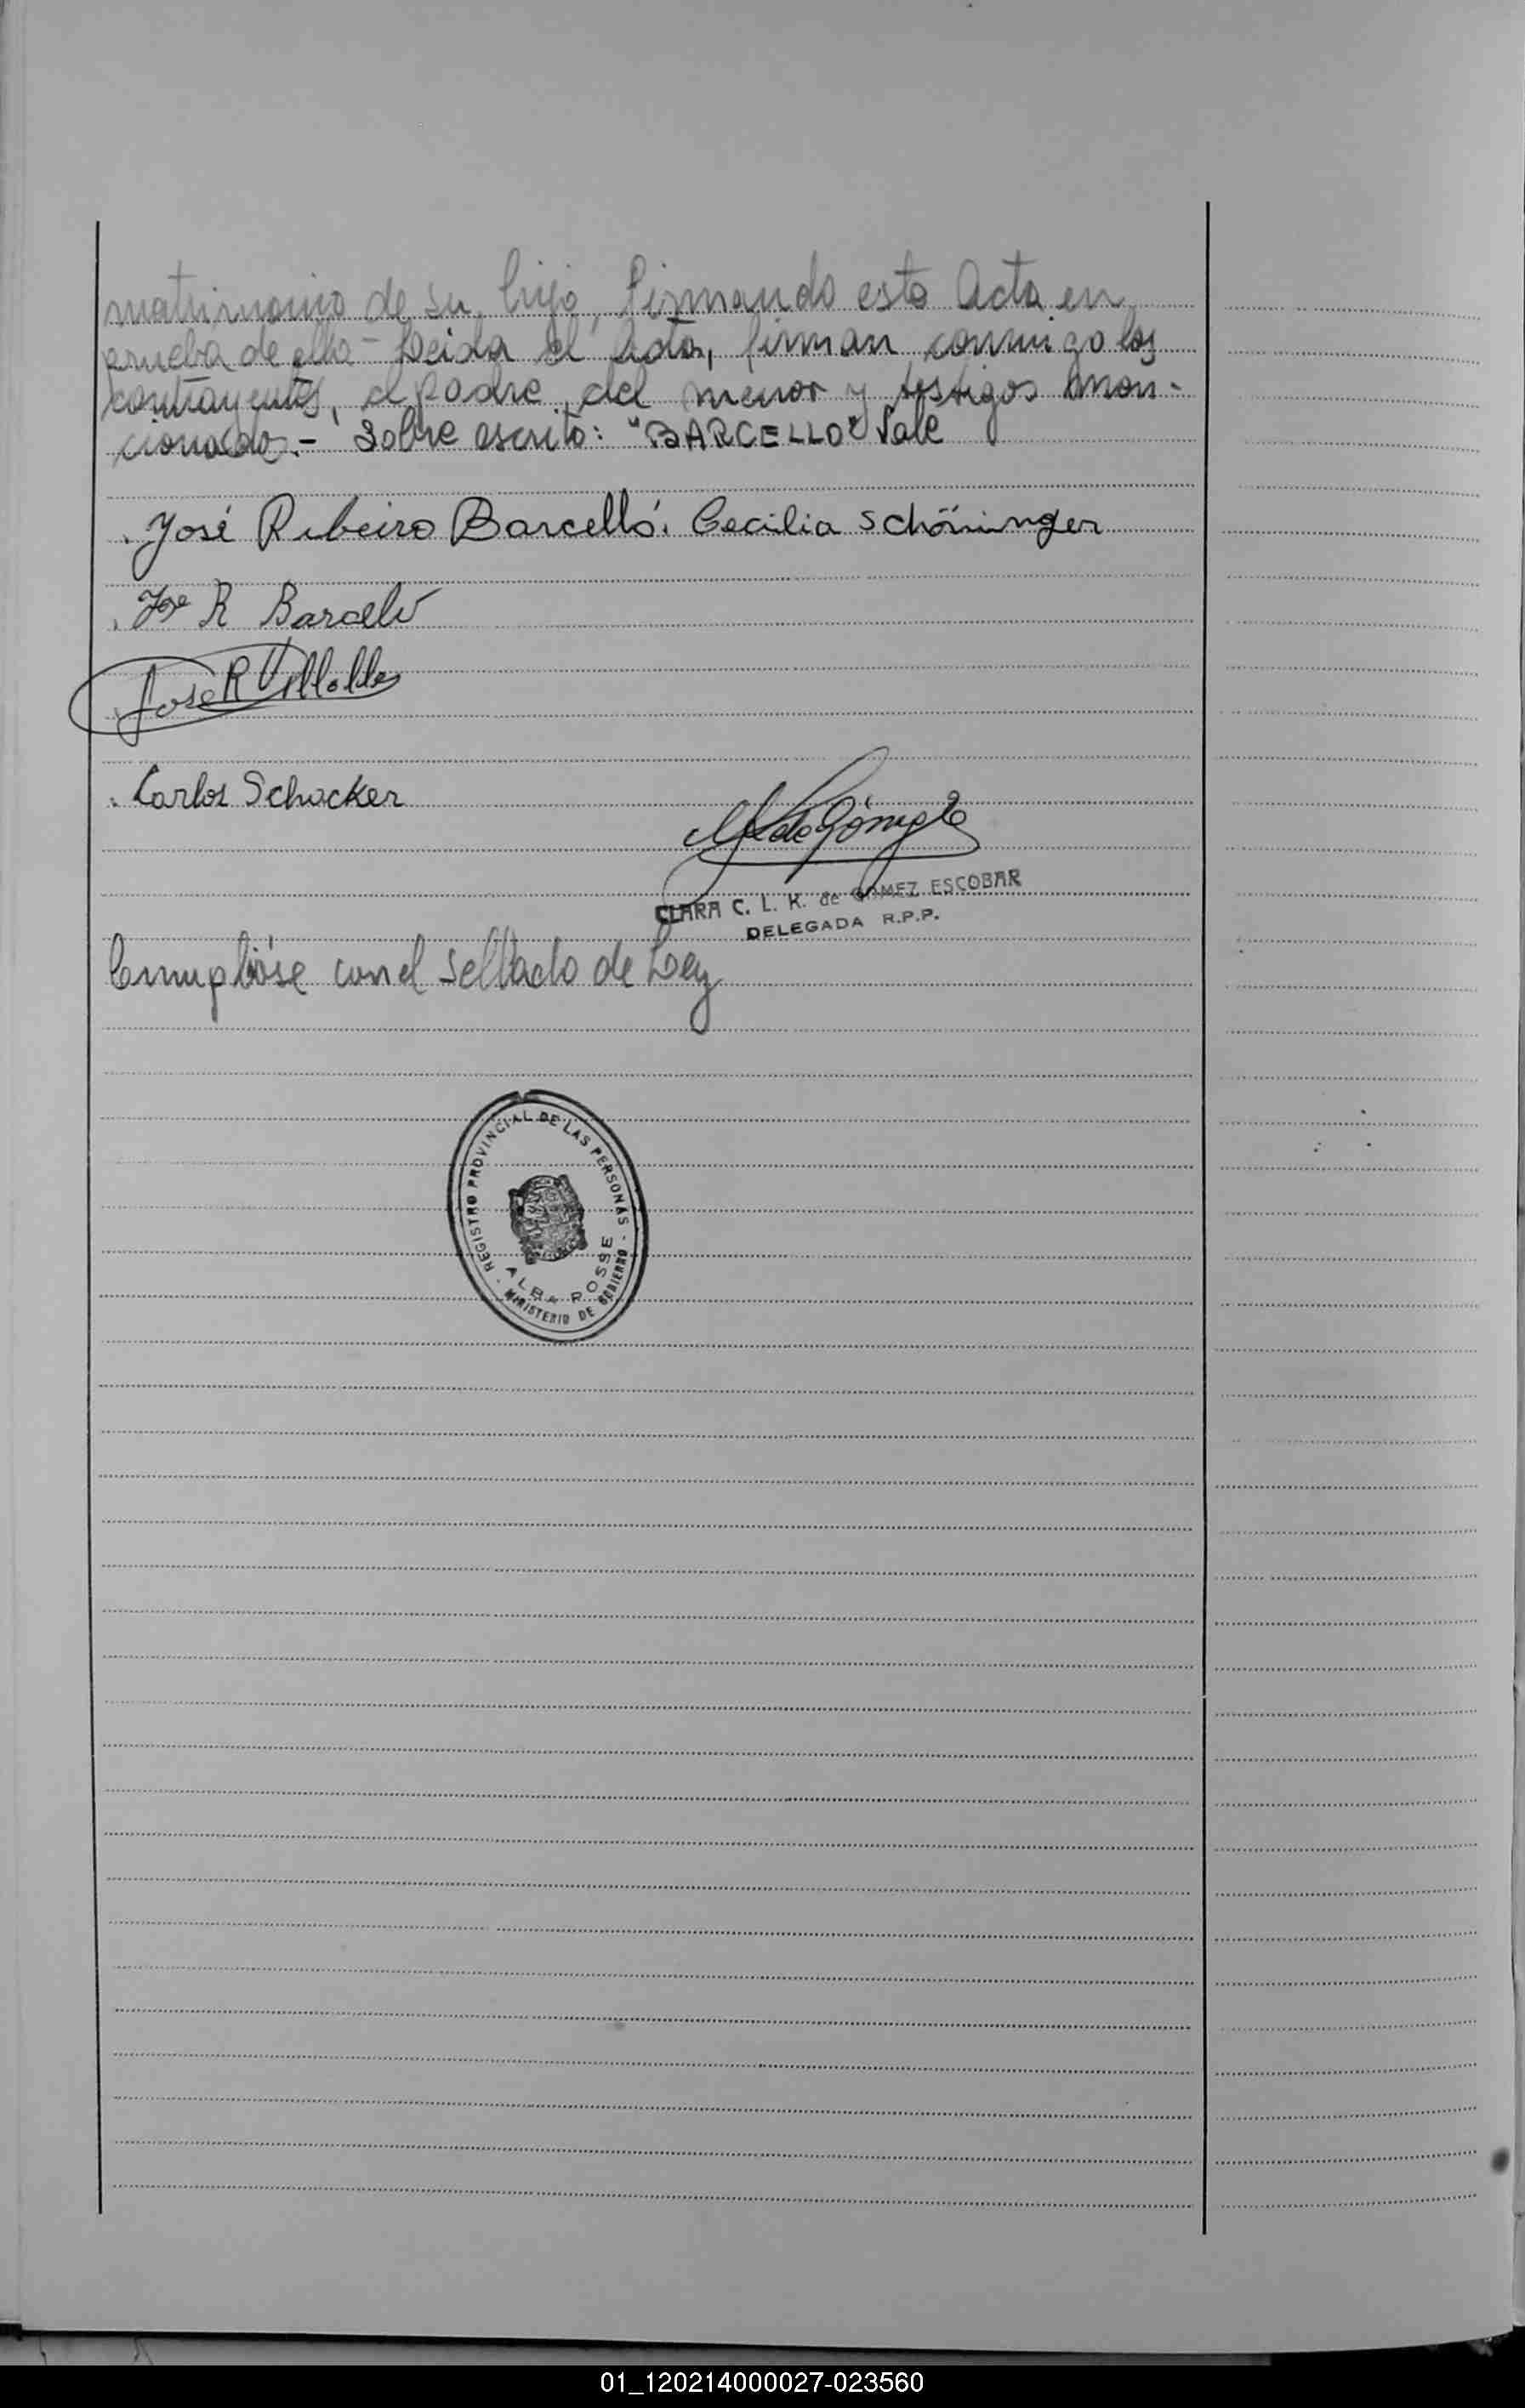 matrimonio de su hijo, firmando esta Acta en
prueba de ello - Leida el Acta, firman conmigo los
contrayentes, el padre del menor y testigos men-
cionados. - Sobre escrito: "BARCELLO" Vale
José Ribeiro Barcelló. Cecilia Schöninger
José R Barceló
José R Villalba
Carlos Schacker
CLARA C. L. K. de GOMEZ ESCOBAR
DELEGADA R.P.P.
Cumplióse con el sellado de Ley
REGISTRO PROVINCIAL DE LAS PERSONAS - MINISTERIO DE GOBIERNO -
ALBA POSSE
01_120214000027-023560